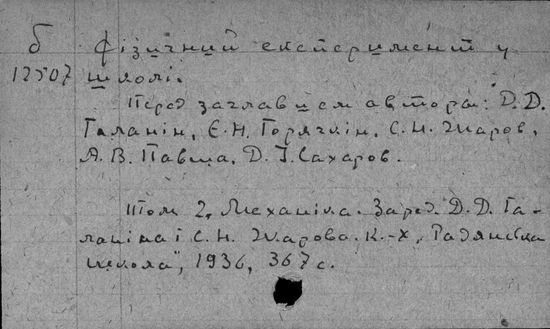 б Фізичний експеримент у
12507 школі.
Перед заглавием автора: Д.Д.
Галанін, Є.Н. Горячкін, С.Н. Жаров,
А.В. Павша, Д.І. Сахаров.
Том 2, Механіка. Заред. Д.Д. Га-
ланіна і С.Н. Жарова. К.-Х., "Радянська
школа", 1936, 367 с.